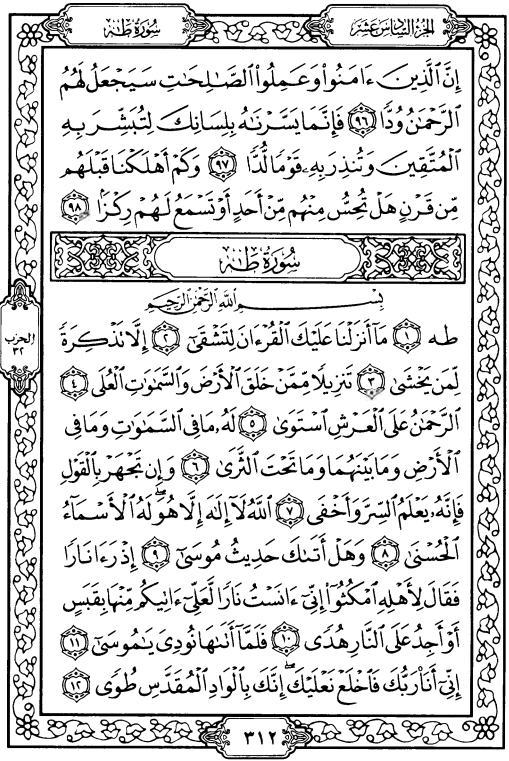 الجزء السادس عشر
سورة طه
إِنَّ الَّذِينَ ءَامَنُوا وَعَمِلُوا الصَّٰلِحَٰتِ سَيَجْعَلُ لَهُمُ
الرَّحْمَٰنُ وُدًّا ٩٦ فَإِنَّمَا يَسَّرْنَٰهُ بِلِسَانِكَ لِتُبَشِّرَ بِهِ
الْمُتَّقِينَ وَتُنذِرَ بِهِۦ قَوْمًا لُّدًّا ٩٧ وَكَمْ أَهْلَكْنَا قَبْلَهُم
مِّن قَرْنٍ هَلْ تُحِسُّ مِنْهُم مِّنْ أَحَدٍ أَوْ تَسْمَعُ لَهُمْ رِكْزًا ٩٨
سُورَةُ طه
بِسْمِ اللَّهِ الرَّحْمَٰنِ الرَّحِيمِ
طه ١ مَا أَنزَلْنَا عَلَيْكَ الْقُرْءَانَ لِتَشْقَىٰ ٢ إِلَّا تَذْكِرَةً
لِّمَن يَخْشَىٰ ٣ تَنزِيلًا مِّمَّنْ خَلَقَ الْأَرْضَ وَالسَّمَٰوَٰتِ الْعُلَى ٤
الرَّحْمَٰنُ عَلَى الْعَرْشِ اسْتَوَىٰ ٥ لَهُۥ مَا فِي السَّمَٰوَٰتِ وَمَا فِي
الْأَرْضِ وَمَا بَيْنَهُمَا وَمَا تَحْتَ الثَّرَىٰ ٦ وَإِن تَجْهَرْ بِالْقَوْلِ
فَإِنَّهُۥ يَعْلَمُ السِّرَّ وَأَخْفَى ٧ اللَّهُ لَا إِلَٰهَ إِلَّا هُوَ ۖ لَهُ الْأَسْمَاءُ
الْحُسْنَىٰ ٨ وَهَلْ أَتَىٰكَ حَدِيثُ مُوسَىٰ ٩ إِذْ رَءَا نَارًا
فَقَالَ لِأَهْلِهِ امْكُثُوا إِنِّي ءَانَسْتُ نَارًا لَّعَلِّي ءَاتِيكُم مِّنْهَا بِقَبَسٍ
أَوْ أَجِدُ عَلَى النَّارِ هُدًى ١٠ فَلَمَّا أَتَىٰهَا نُودِيَ يَٰمُوسَىٰ ١١
إِنِّي أَنَا رَبُّكَ فَاخْلَعْ نَعْلَيْكَ ۖ إِنَّكَ بِالْوَادِ الْمُقَدَّسِ طُوًى ١٢
الحزب
٣٢
٣١٢